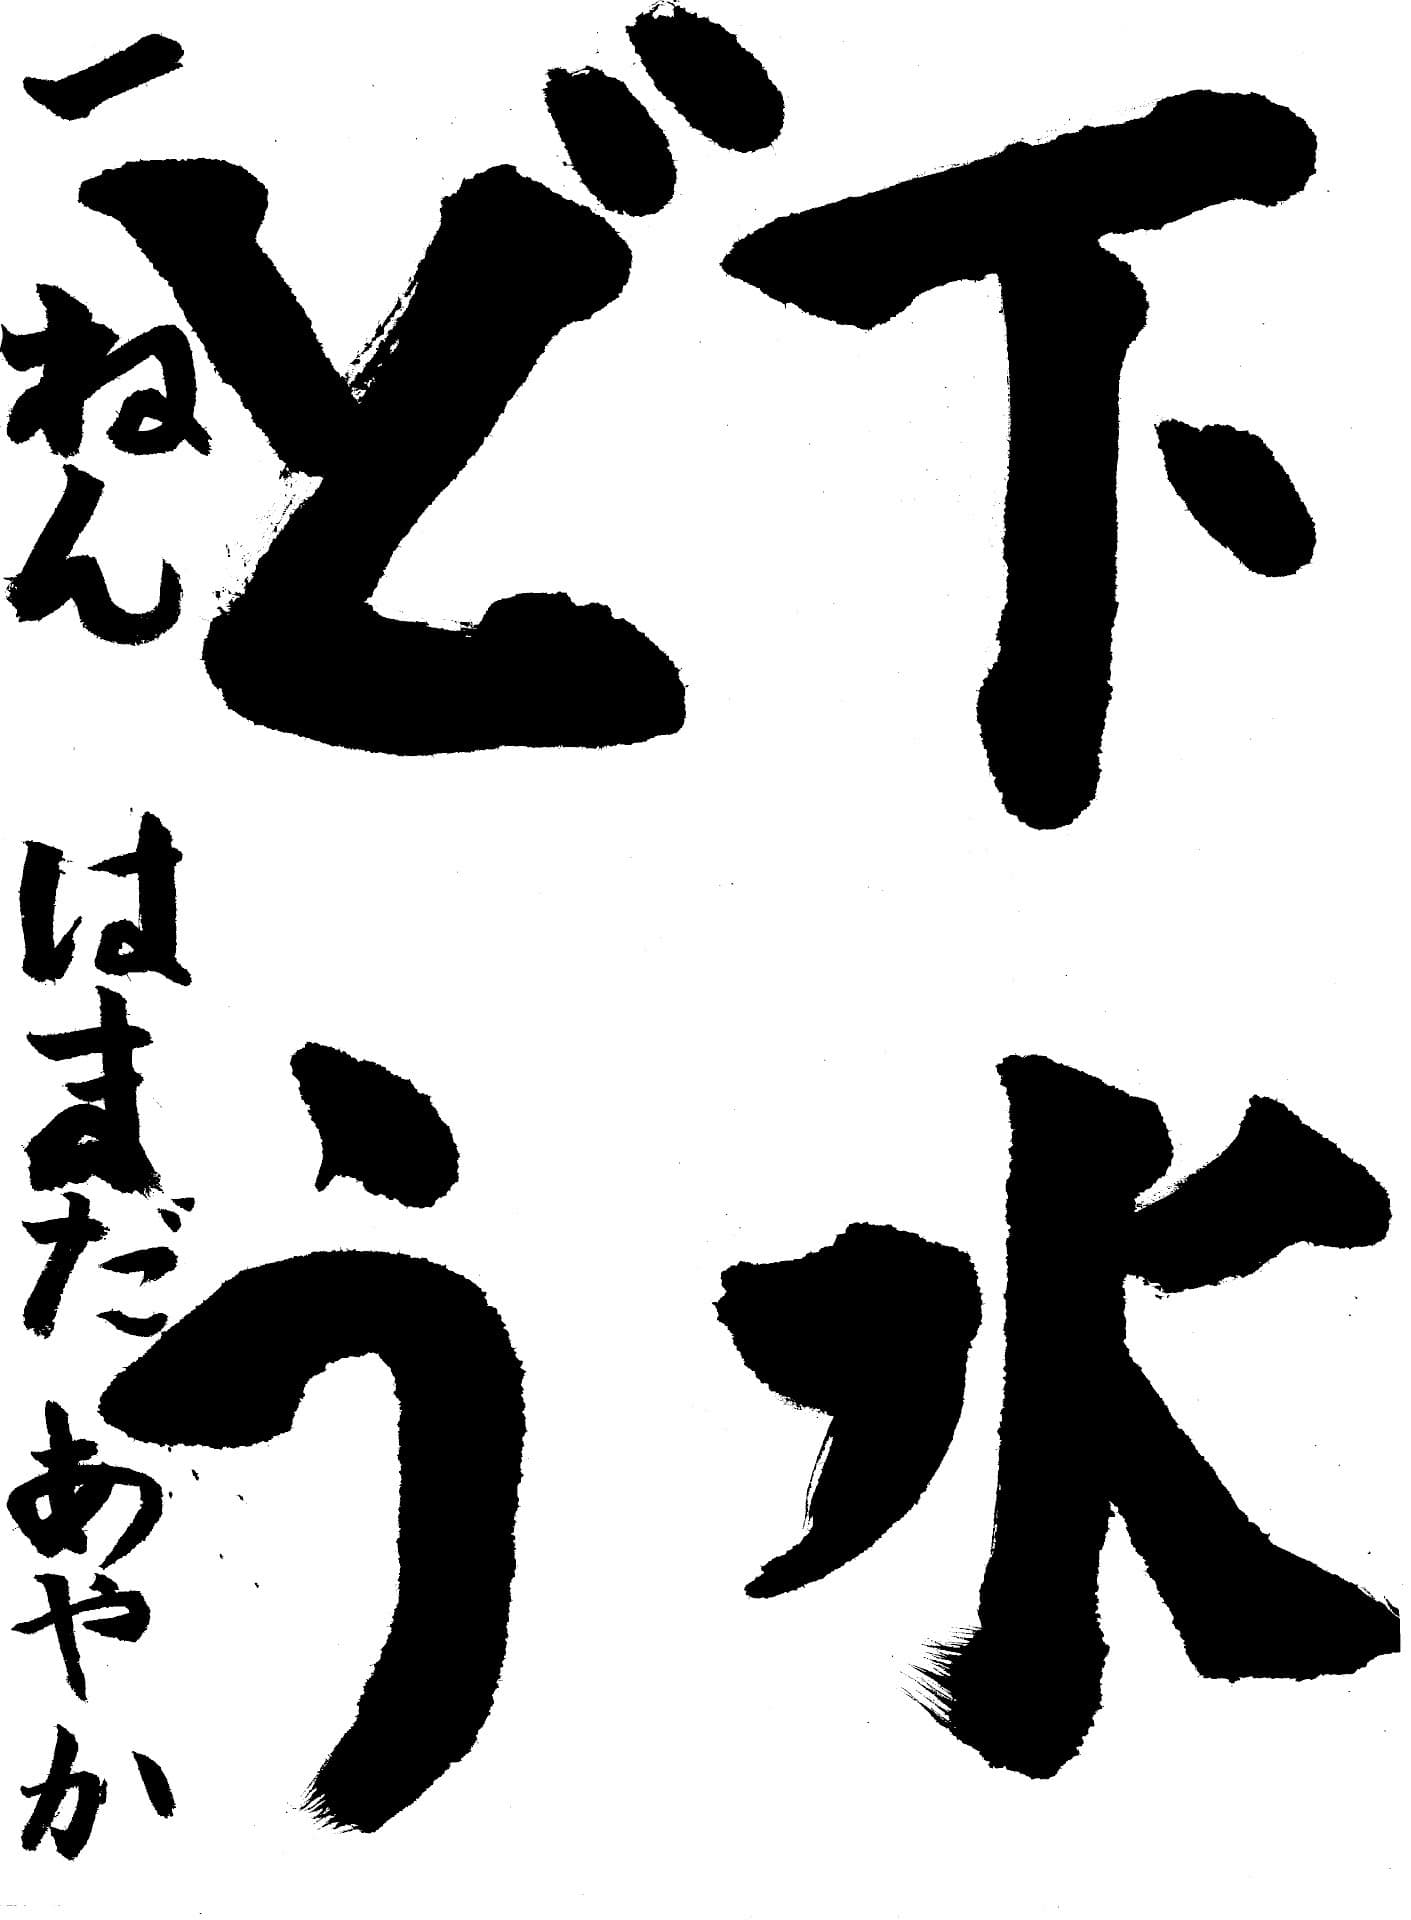 下水
どう
一ねん はまだ あやか